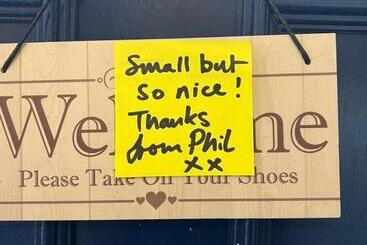 Small but
so nice!
Thanks
from Phil
xx
Wel me
Please Take Off Your Shoes